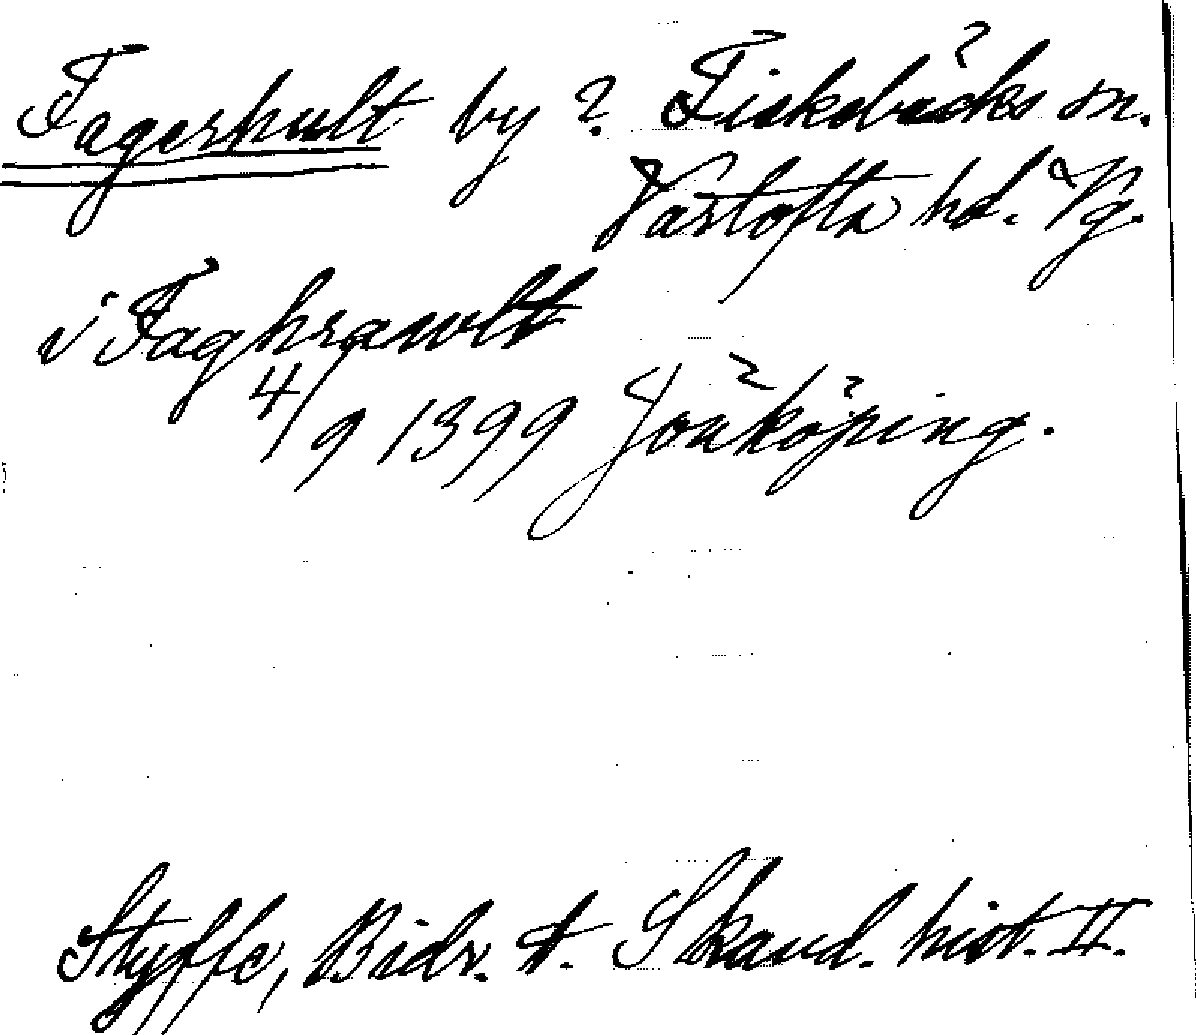 Fagerhult by? Fiskebäcks sn.
Vartofta hd. Vg.
i Faghrawlt
4/9 1399 Jönköping.
Styffe, Bidr. t. Skand. hist. II.